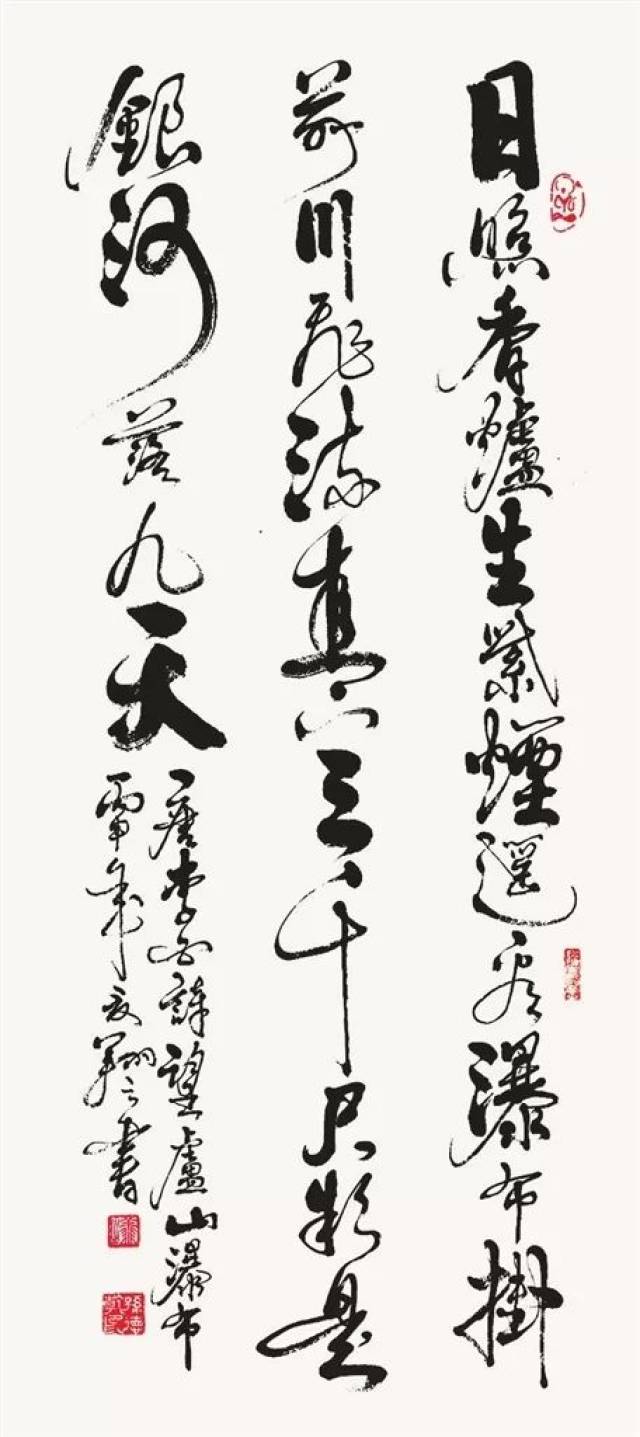 日照香爐生紫煙遥看瀑布掛
前川飛流直下三千尺疑是
銀河落九天
唐李白詩望廬山瀑布
丙申年夏翔之書
孫德